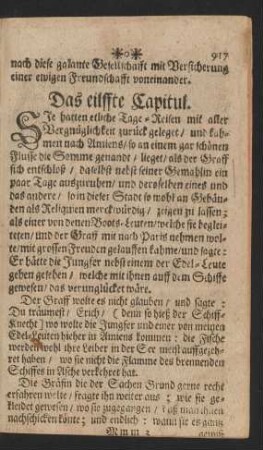 ✠o✠ 917
nach diese galante Gesellschafft mit Versicherung
einer ewigen Freundschafft voneinander.
Das eilffte Capitul.
SJe hatten etliche Tage-Reisen mit aller
Vergnüglichkeit zurück geleget / und kah-
men nach Amiens / so an einem gar schönen
Flusse die Somme genandt / lieget / als der Graff
sich entschloß / daselbst nebst seiner Gemahlin ein
paar Tage auszuruhen / und deroselben eines und
das andere / so in dieser Stadt so wohl an Gebäu-
den als Reliquien merckwürdig / zeigen zu lassen;
als einer von denen Boots-Leuten / welche sie beglei-
teten / und der Graff mit nach Paris nehmen wol-
te / mit grossen Freuden gelauffen kahme / und sagte:
Er hätte die Jungfer nebst einem der Edel-Leute
gehen gesehen / welche mit ihnen auff dem Schiffe
gewesen / das verunglücket wäre.
Der Graff wolte es nicht glauben / und sagte:
Du träumest / Erich / ( denn so hieß der Schiff-
Knecht ) wo wolte die Jungfer und einer von meinen
Edel-Leuten hieher in Amiens kommen: die Fische
werden wohl ihre Leiber in der See meist auffgezeh-
ret haben / wo sie nicht die Flamme des brennenden
Schiffes in Asche verkehret hat.
Die Gräfin die der Sachen Grund gerne recht
erfahren wolte / fragte ihn weiter aus: wie sie ge-
kleidet gewesen / wo sie zugegangen / daß man ihnen
nachschicken könte; und endlich: wann sie es gantz
Mmm 3